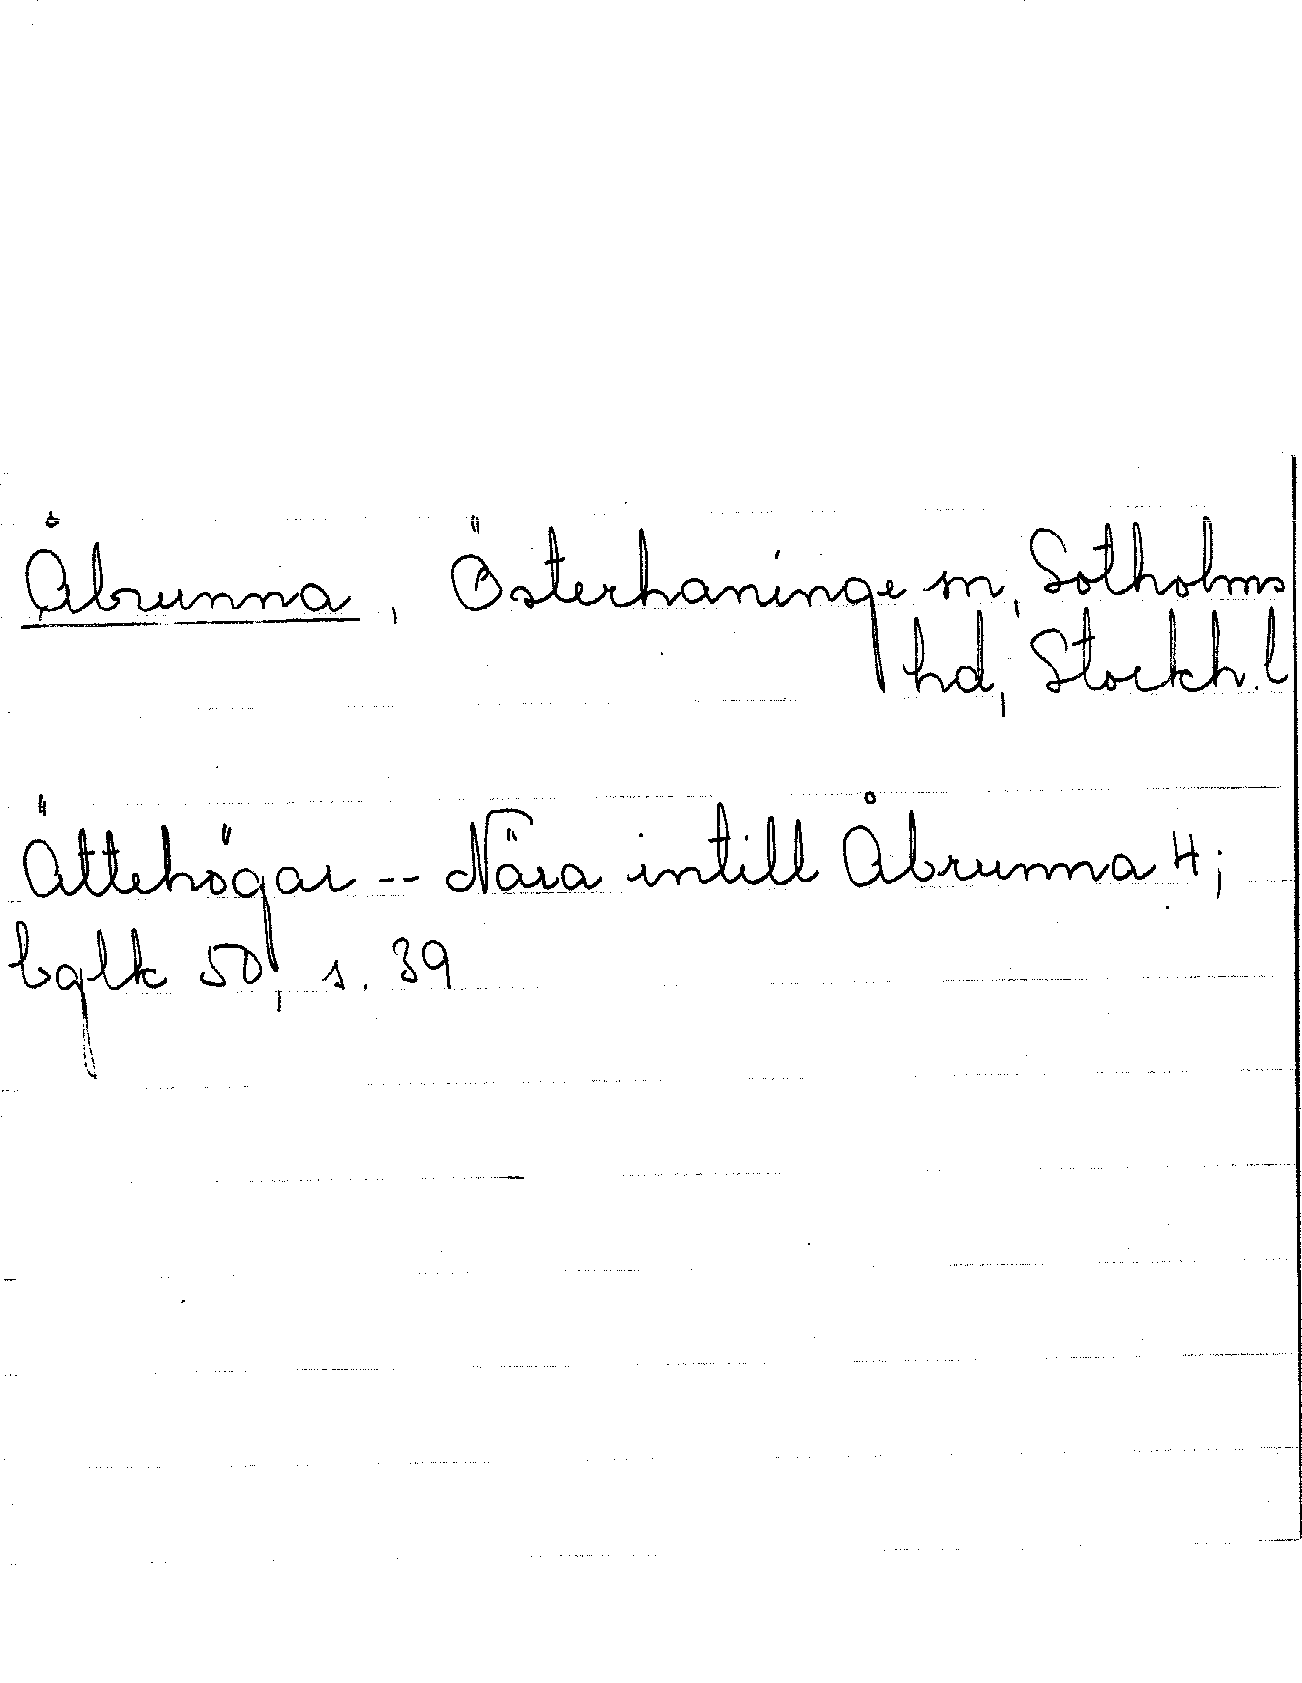 Åbrunna, Österhaninge sn, Sotholms
hd, Stockh. l
Ättehögar -- Nära intill Åbrunna 4;
bglk 50, s. 39